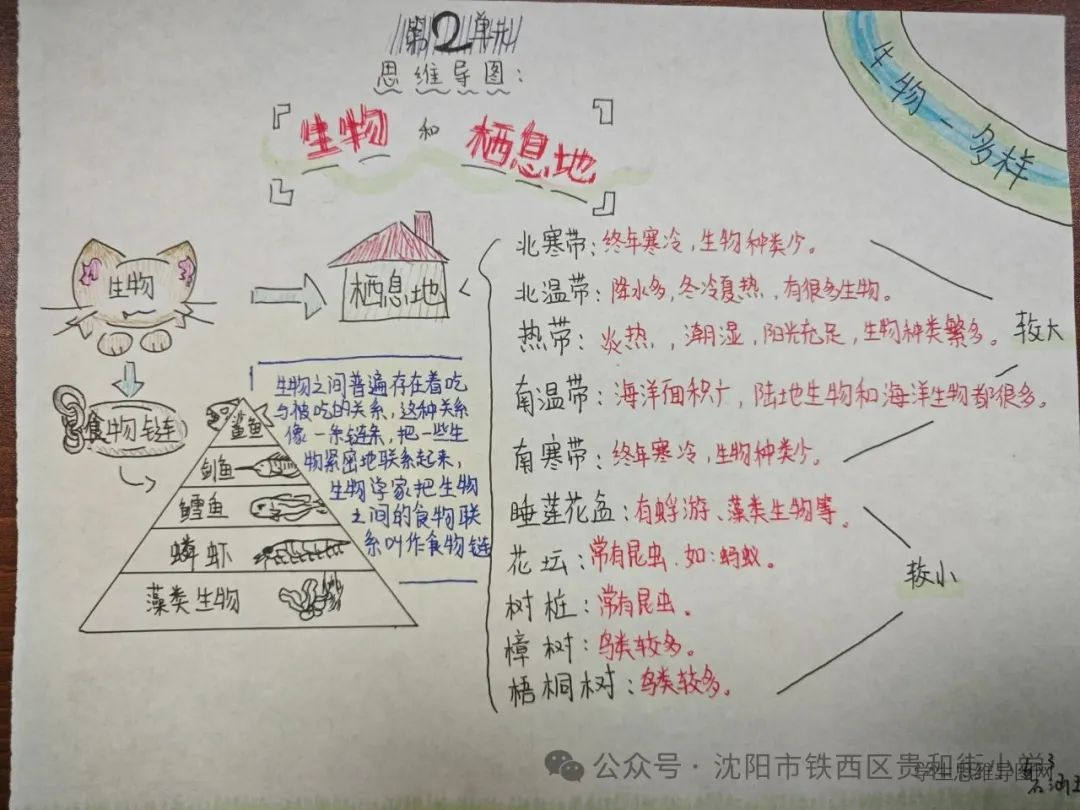 第2单元
思维导图：
生物 和 栖息地
生物-多样
生物
栖息地
食物链
鲨鱼
剑鱼
鳕鱼
磷虾
藻类生物
生物之间普遍存在着吃
与被吃的关系，这种关系
像一条链条，把一些生
物紧密地联系起来，
生物学家把生物
之间的食物联
系叫作食物链
北寒带：终年寒冷，生物种类少。
北温带：降水多，冬冷夏热，有很多生物。
热带：炎热，潮湿，阳光充足，生物种类繁多。
南温带：海洋面积广，陆地生物和海洋生物都很多。
南寒带：终年寒冷，生物种类少。
较大
睡莲花盆：有蜉游、藻类生物等。
花坛：常有昆虫.如：蚂蚁。
树桩：常有昆虫。
樟树：鸟类较多。
梧桐树：鸟类较多。
较小
公众号·沈阳市铁西区贵和街小学
学生思维导图网